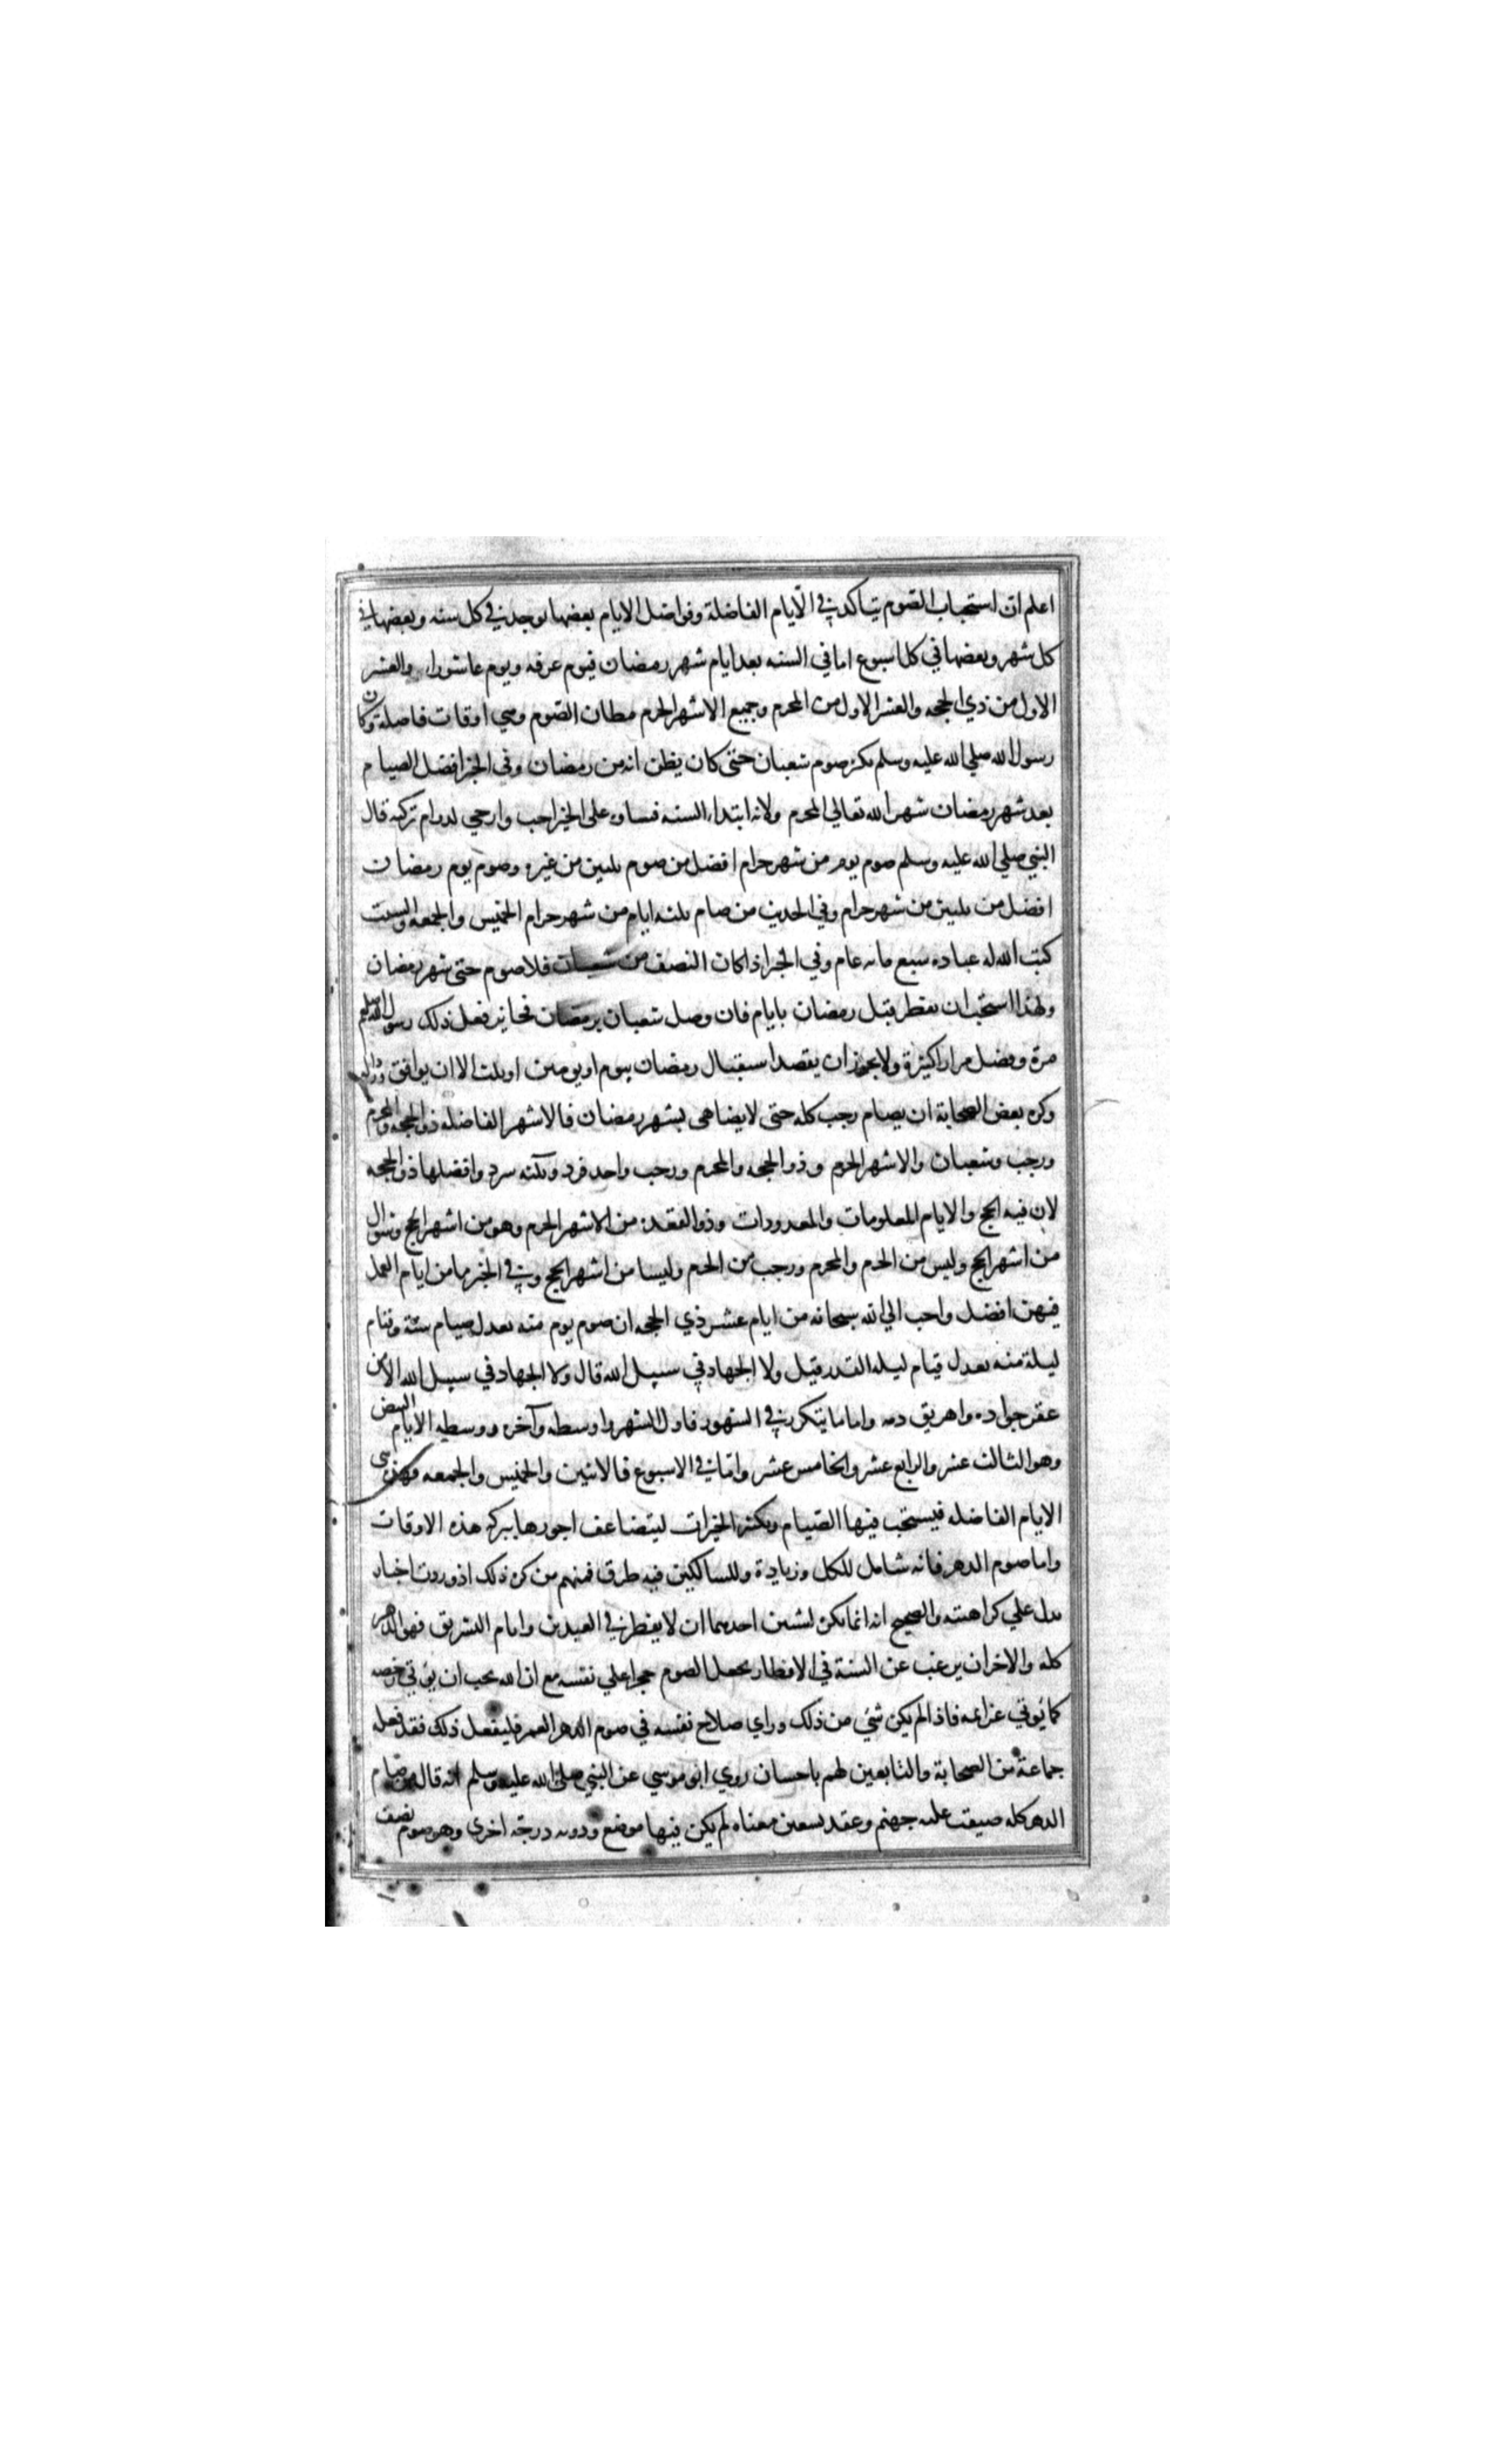 اعلم ان استحباب الصوم يتاكد في الايام الفاضلة وفواضل الايام بعضها يوجد في كل سنه وبعضها في
كل شهر وبعضها في كل اسبوع اما في السنه بعد ايام شهر رمضان فيوم عرفه ويوم عاشورا والعشر
الاول من ذي الحجه والعشر الاول من المحرم وجميع الاشهر الحرم مظان الصوم وهي اوقات فاضلة وكان
رسول الله صلي الله عليه وسلم يكثر صوم شعبان حتى كان يظن انه من رمضان وفي الخبر افضل الصيام
بعد شهر رمضان شهر الله تعالي المحرم ولانه ابتداء السنه فبناوه على الخير احب وارجي لدوام تركيه قال
النبي صلي الله عليه وسلم صوم يوم من شهر حرام افضل من صوم ثلثين من غيره وصوم يوم رمضان
افضل من ثلثين من شهر حرام وفي الحديث من صام ثلثه ايام من شهر حرام الخميس والجمعه والسبت
كتب الله له عباده سبع مائه عام وفي الخبر اذا كان النصف من شعبان فلا صوم حتى شهر رمضان
ولهذا استحب ان يفطر قبل رمضان بايام فان وصل شعبان برمضان فجايز فعل ذلك رسول الله صلعم
مرة وفصل مرارا كثيرة ولا يجوز ان يقصد استقبال رمضان بيوم او يومين او ثلث الا ان يوافق ورداله
وكره بعض الصحابة ان يصام رجب كله حتى لا يضاهى بشهر رمضان فالاشهر الفاضله ذو الحجه والمحرم
ورجب وشعبان والاشهر الحرم وذو الحجه والمحرم ورجب واحد فرد وثلثه سرد وافضلها ذو الحجه
لان فيه الحج والايام المعلومات والمعدودات وذو القعده من الاشهر الحرم وهو من اشهر الحج وشوال
من اشهر الحج وليس من الحرم والمحرم ورجب من الحرم وليسا من اشهر الحج وفي الخبر ما من ايام العمل
فيهن افضل واحب الي الله سبحانه من ايام عشر ذي الحجه ان صوم يوم منه يعدل صيام سنة وقيام
ليلة منه يعدل قيام ليله القدر قيل ولا الجهاد في سبيل الله قال ولا الجهاد في سبيل الله الا من
عقر جواده واهريق دمه واما ما يتكرر في الشهور فاول الشهر واوسطه وآخره ووسطه الايام البيض
وهو الثالث عشر والرابع عشر والخامس عشر واما في الاسبوع فالاثنين والخميس والجمعه فهذه هي
الايام الفاضله فيستحب فيها الصيام وتكثير الخيرات ليتضاعف اجورها ببركه هذه الاوقات
واما صوم الدهر فانه شامل للكل وزيادة وللسالكين فيه طرق فمنهم من كره ذلك اذ وردت اخبار
تدل علي كراهته والصحيح انه انما يكره لشيئين احدهما ان لا يفطر في العيدين وايام التشريق فهو الدهر
كله والاخر ان يرغب عن السنة في الافطار يجعل الصوم حجرا علي نفسه مع ان الله يحب ان يؤتي رخصه
كما يؤتي عزايمه فاذا لم يكن شئ من ذلك وراي صلاح نفسه في صوم الدهر العمر فليفعل ذلك فقد فعله
جماعة من الصحابة والتابعين لهم باحسان روي ابو موسي عن النبي صلي الله عليه وسلم انه قال من صام
الدهر كله ضيقت عليه جهنم وعقد تسعين معناه لم يكن فيها موضع ودونه درجة اخرى وهو صوم نصف